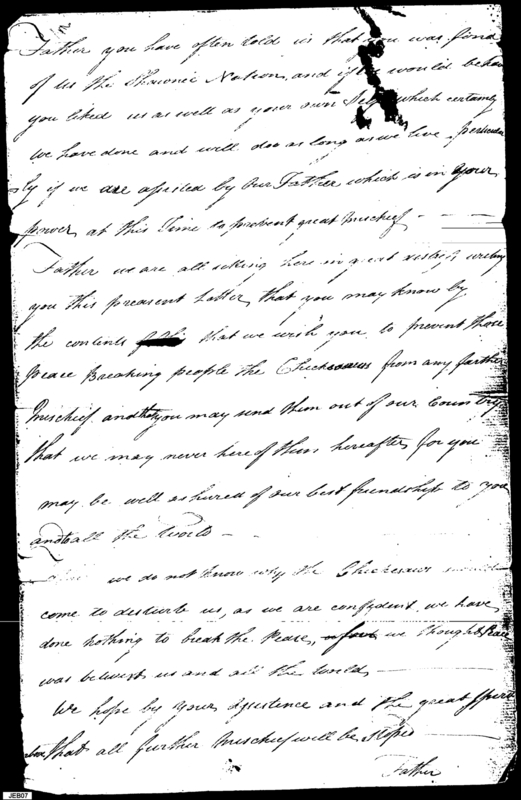 Father you have often told us that you was fond
of us the Shawnie Nation and if we would behave
you liked us as well as your own Self which certainly
we have done and will doo as long as we live perticular
ly if we are asisted by Our Father which is in your
power at this Time to prevent great Mischief
Father we are all siting here in great distress writing
you this preasent Letter, that you may know by
the contents that we wish you to prevent those
peace Breaking people the Chickesaws from any farther
Mischief and that you may send them out of our Country
that we may never here of them hereafter, for you
may be well ashured of our best friendship to you
and to all the World
we do not know why the Chickesaws
come to desturb us, as we are confydent we have
done nothing to break the Peace, we thought Peace
was betwixt us and all the World
We hope by your asistence and the great Spirit
above that all further Mischief will be Stopd
Father
JEB07